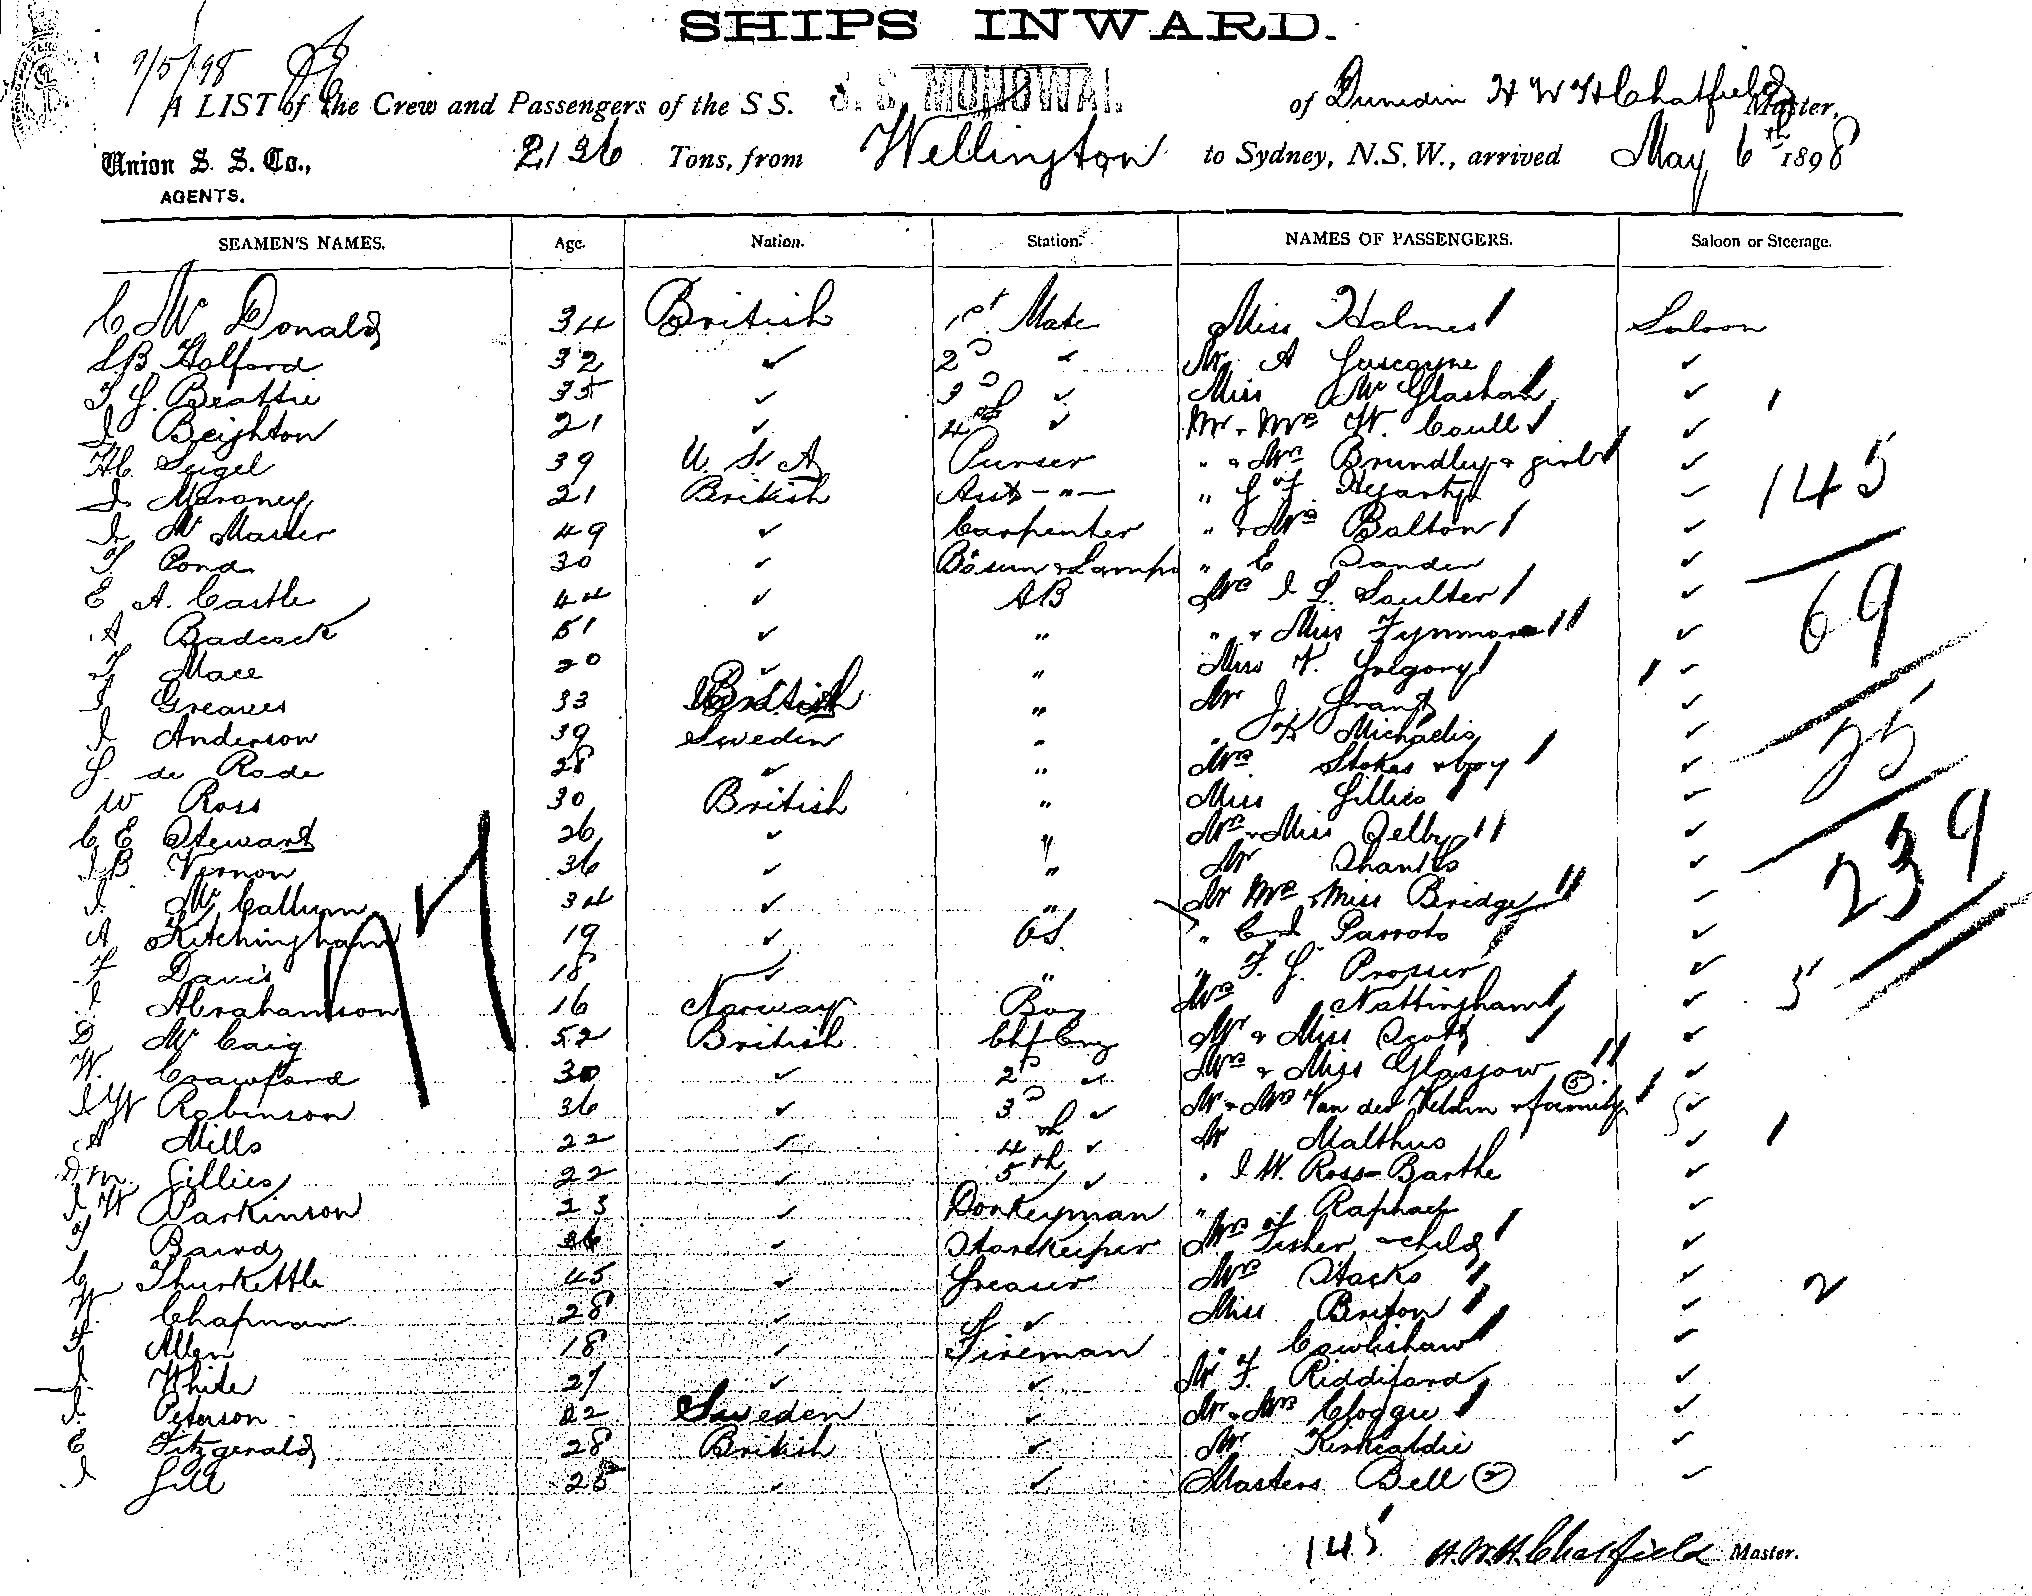 SHIPS INWARD.
9/5/98
A LIST of the Crew and Passengers of the S S. S. S. MONOWAI. of Dunedin H W H Chatfield Master,
Union S. S. Co., 2136 Tons, from Wellington to Sydney, N.S.W., arrived May 6th 1898
AGENTS.
SEAMEN'S NAMES. Age. Nation. Station. NAMES OF PASSENGERS. Saloon or Steerage.
C Mc Donald 34 British 1st Mate Miss Holmes Saloon
S.B Holford 32 ✓ 2D ✓ Mr A Gascoyne ✓
T G. Beattie 35 ✓ 3D ✓ Miss Mc Glashan ✓ 1
J Beighton 21 ✓ 4th ✓ Mr & Mrs W. Coull ✓
H.C. Seigel 39 U. S. A Purser " & Mrs Brundley & girl ✓ 145
J Moroney 21 British Asst - " - " G F. Hegarty ✓
J Mc Master 49 ✓ Carpenter " & Mrs Balton ✓
T Pond 30 ✓ Bosun & Lamps " E Danden ✓
E A. Castle 44 ✓ AB Mrs J L. Saulter ✓ 69
A Badcock 51 ✓ " " & Miss Fynmore ✓
T Mace 20 ✓ " Miss F. Gregory ✓
T Greaves 33 British " Mr J. Grant ✓
J Anderson 39 Sweden " " Michaelis ✓ 25
G. de Rode 28 ✓ " Mrs Stokes & boy ✓
W Ross 30 British " Miss Gillies ✓
C E Stewart 26 ✓ " Mrs & Miss Selby ✓ 239
J B Vernon 36 ✓ " Mr Shanlls ✓
J. Mc Callum 34 ✓ " Mr Mrs & Miss Bridge ✓
A Kitchingham 19 ✓ OS. " Parroto ✓
F Davis 18 ✓ " " F. G. Prosser ✓
J Abrahamson 16 Norway Boy Mrs Nottingham ✓ 5
D Mc Caig 52 British Chf Eng Mr & Miss Scott ✓
W. Crawford 30 ✓ 2D ✓ Mrs & Miss Glasgow ✓
J W Robinson 36 ✓ 3D ✓ Mr & Mrs Van der Velden & family (5) ✓
A Mills 22 ✓ 4th ✓ Mr Malthus ✓ 1
D M. Gillies 22 ✓ 5th ✓ " J W. Ross-Barthe ✓
J W Parkinson 23 ✓ Donkeyman " Raphael ✓
T Baird 26 ✓ Storekeeper Mrs Fisher & child ✓
C Thurkettle 45 ✓ Greaser Mrs Stacks ✓ 2
W. Chapman 28 ✓ ✓ Miss Briton ✓
F Allen 18 ✓ Fireman " Cowlishaw ✓
J. White 27 ✓ ✓ Mr F. Riddiford ✓
J. Peterson 22 Sweden ✓ Mr & Mrs Cloggie ✓
E Fitzgerald 28 British ✓ Mr Kirkcaldie ✓
J Gill 28 ✓ ✓ Masters Bell (2) ✓
145 H.W.H. Chatfield Master.